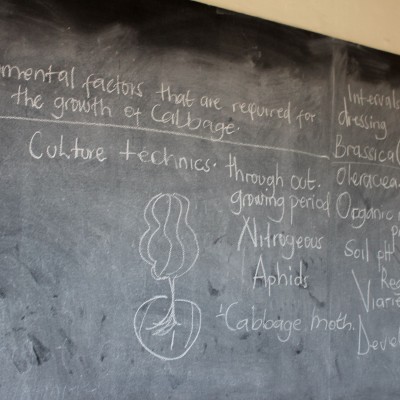 mental factors that are required for
the growth of Cabbage.
Culture technics.
through out.
growing period
Nitrogeous
Aphids
Cabbage moth.
Intervals
dressing
Brassica
Oleracea
Organic
Soil pH
Reg
Viarie
Devel